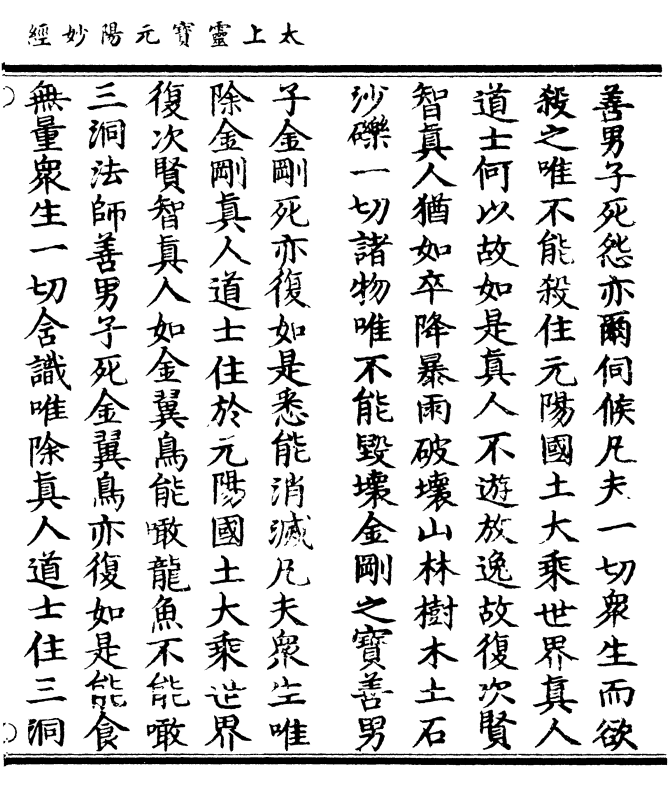 太上靈寶元陽妙經
善男子死怨亦爾伺候凡夫一切衆生而欲
殺之唯不能殺住元陽國土大乘世界真人
道士何以故如是真人不遊放逸故復次賢
智真人猶如卒降暴雨破壞山林樹木土石
沙礫一切諸物唯不能毀壞金剛之寶善男
子金剛死亦復如是悉能消滅凡夫衆生唯
除金剛真人道士住於元陽國土大乘世界
復次賢智真人如金翼鳥能噉龍魚不能噉
三洞法師善男子死金翼鳥亦復如是能食
無量衆生一切含識唯除真人道士住三洞